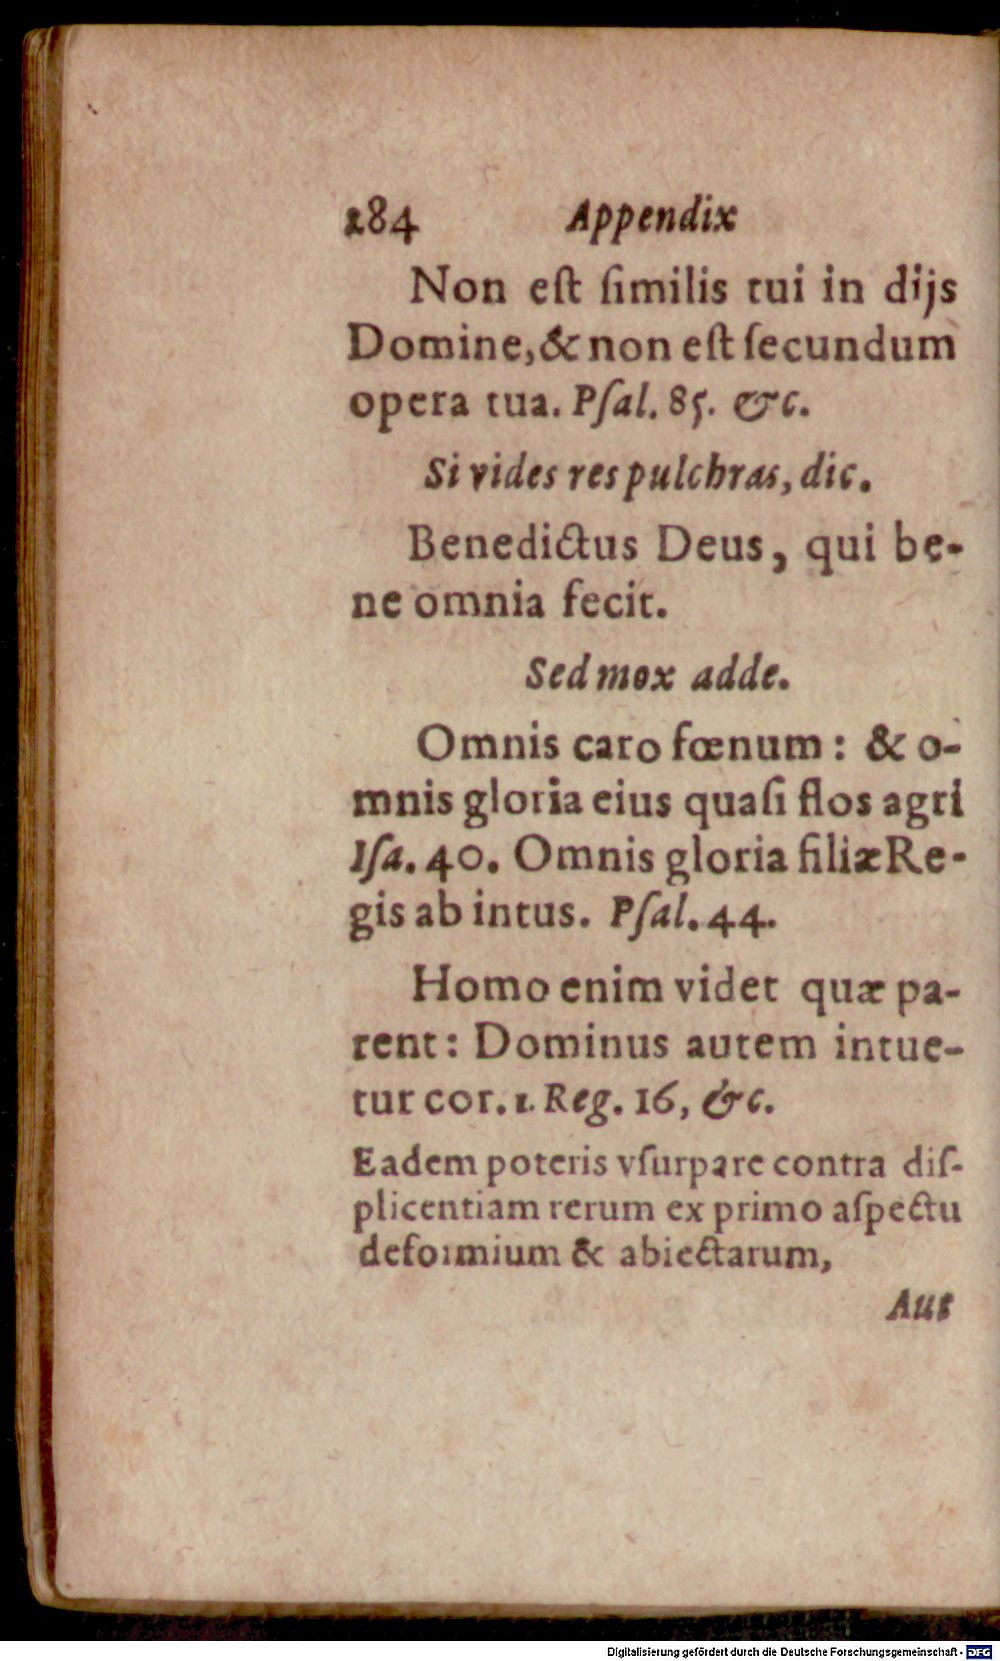 284 Appendix
Non eſt ſimilis tui in dijs
Domine, & non eſt ſecundum
opera tua. Pſal. 85. &c.
Si vides res pulchras, dic.
Benedictus Deus, qui be-
ne omnia fecit.
Sed mox adde.
Omnis caro fœnum: & o-
mnis gloria eius quaſi flos agri
Iſa. 40. Omnis gloria filiæ Re-
gis ab intus. Pſal. 44.
Homo enim videt quæ pa-
rent: Dominus autem intue-
tur cor. 1. Reg. 16, &c.
Eadem poteris vſurpare contra diſ-
plicentiam rerum ex primo aſpectu
deformium & abiectarum,
Aut
Digitalisierung gefördert durch die Deutsche Forschungsgemeinschaft - DFG